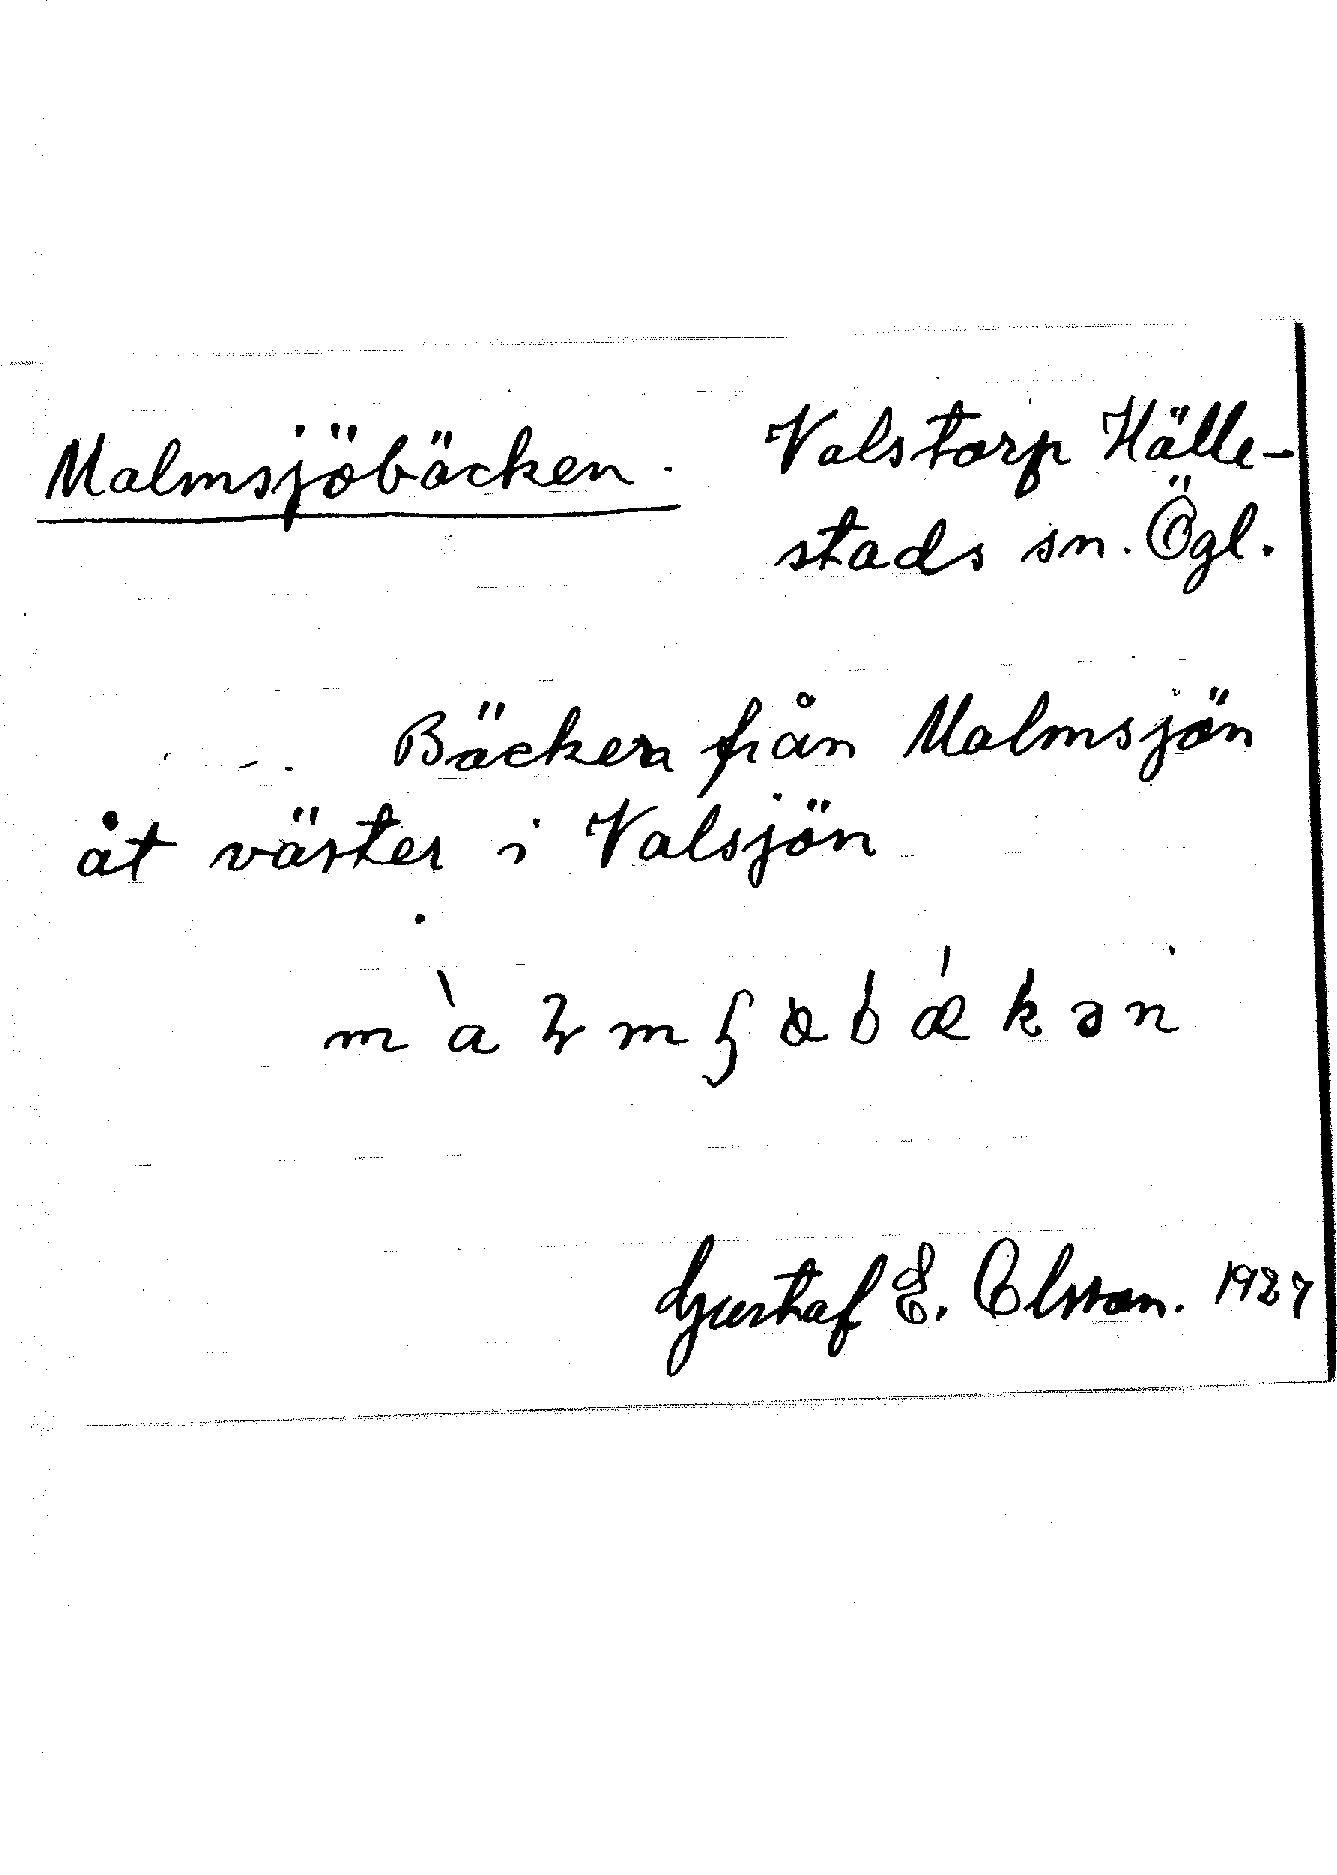 Malmsjöbäcken. Valstorp Hälle-
stads sn. Ögl.
Bäcken från Malmsjön
åt väster i Valsjön
Gustaf E. Olsson. 1927